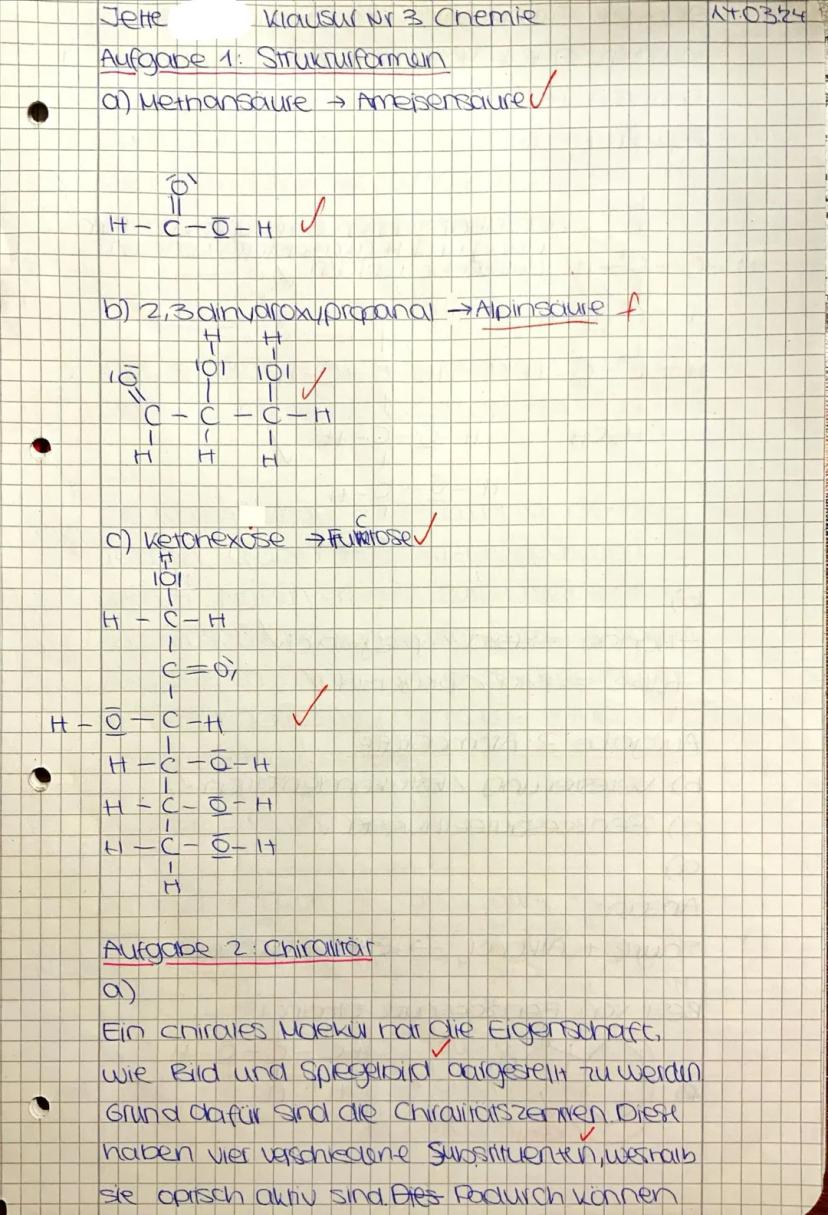 Jette Klausur Nr 3 Chemie 17.03.24
Aufgabe 1: Strukturformeln
a) Methansäure → Ameisensäure ✓
O
||
H – C – O – H ✓
b) 2,3 dihydroxypropanal → Alpinsäure f
H H
O O O ✓
C – C – C – H
H H H
c) Ketohexose → Fructose ✓
H
O
H – C – H
C = O
H – O – C – H ✓
H – C – O – H
H – C – O – H
H – C – O – H
H
Aufgabe 2: Chiralität
a)
Ein chirales Molekül hat die Eigenschaft,
wie Bild und Spiegelbild dargestellt zu werden.
Grund dafür sind die Chiralitätszentren. Diese
haben vier verschiedene Substituenten, weshalb
sie optisch aktiv sind. Dadurch können